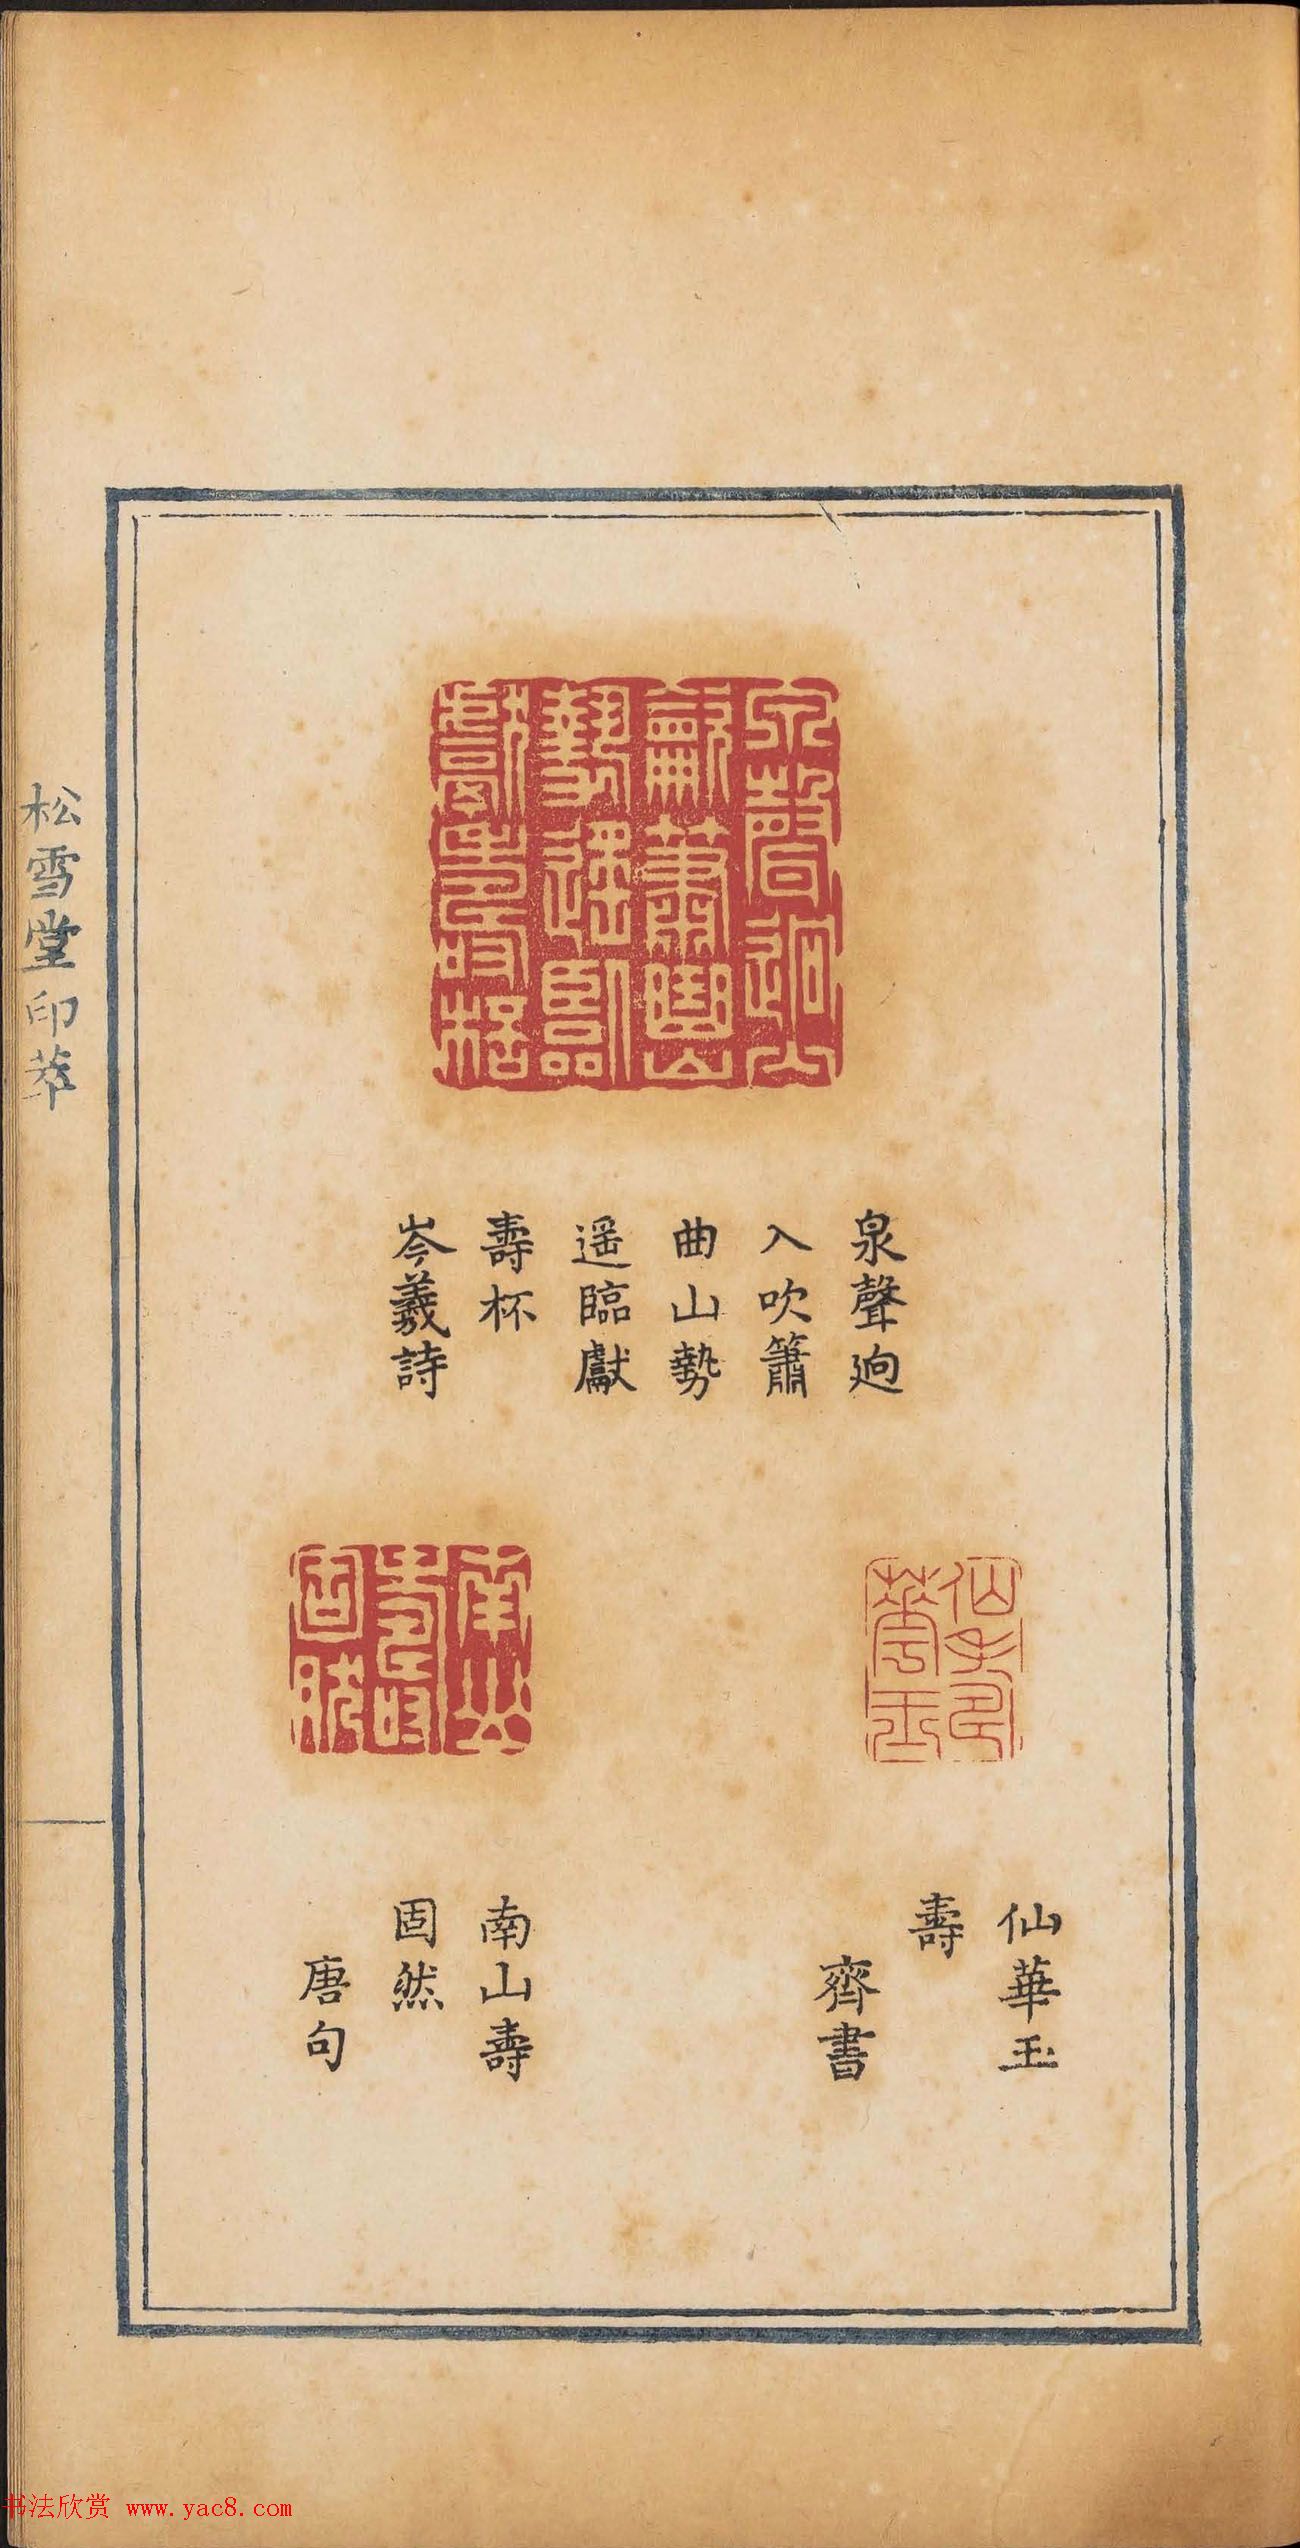 泉聲迿
入吹簫
曲山勢
遥臨獻
壽杯
岑羲詩
仙華玉
壽
齊書
南山壽
固然
唐句
松雪堂印萃
书法欣赏 www.yac8.com